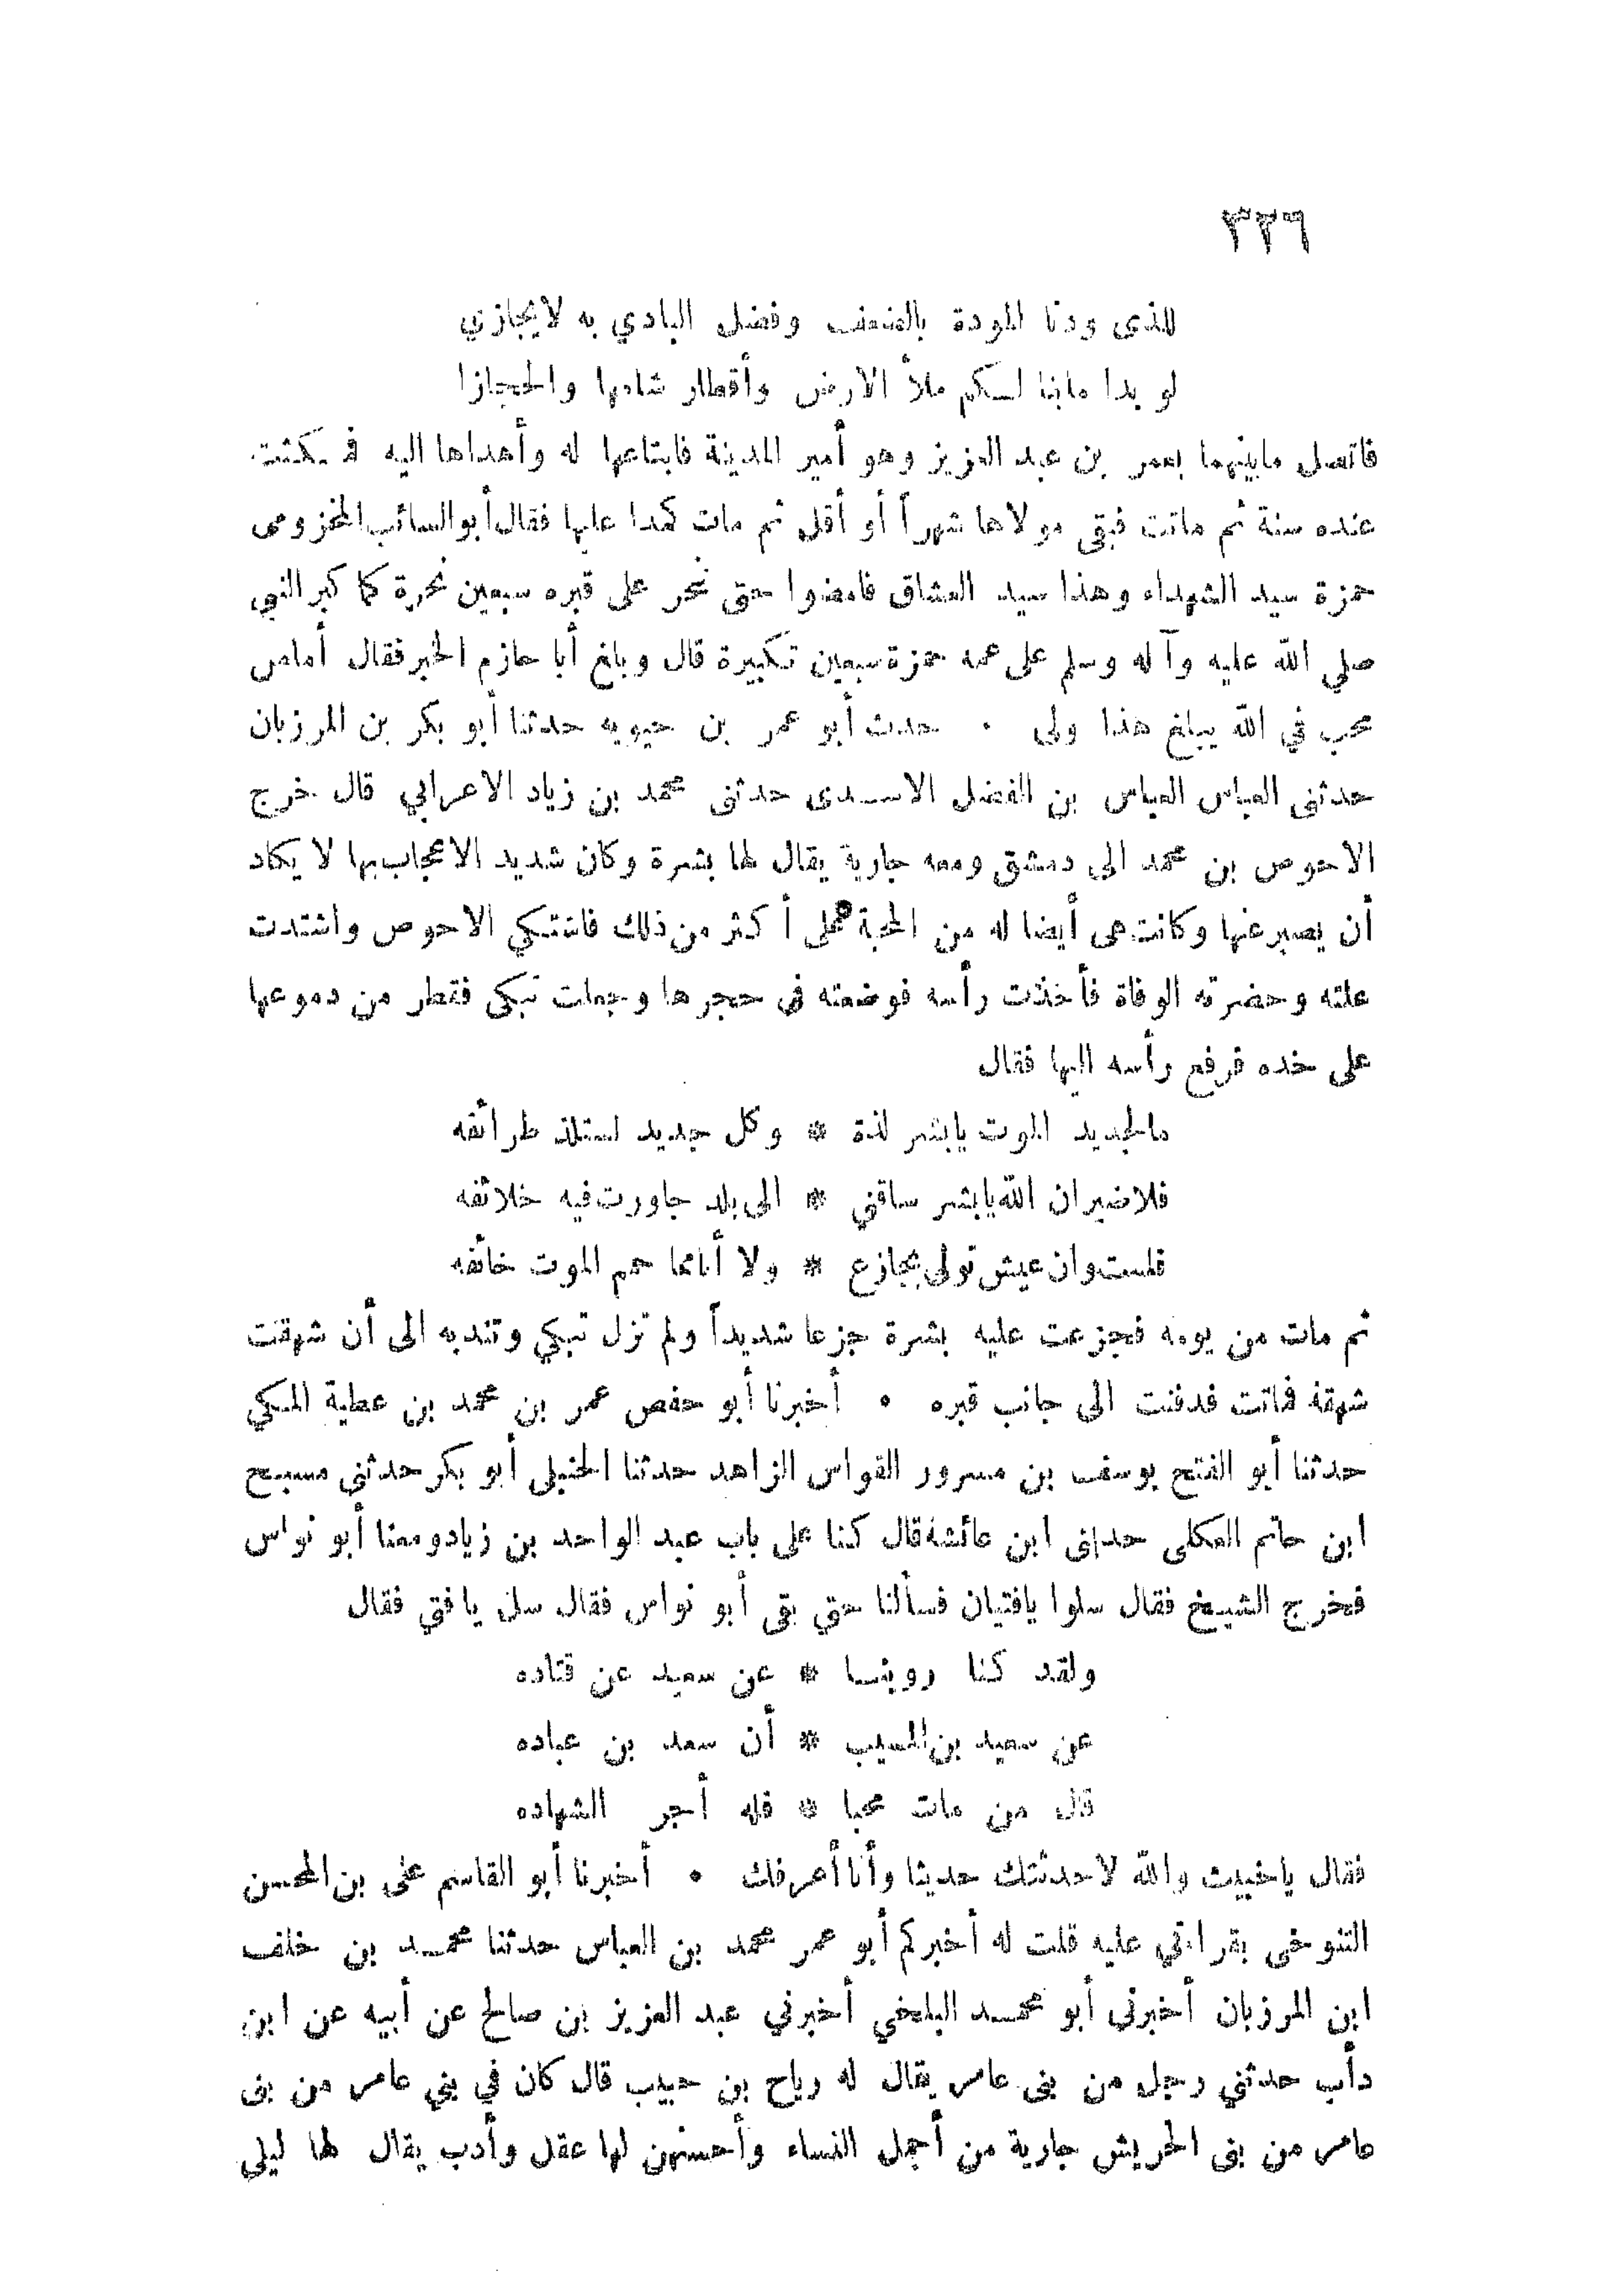 ٣٢٦
للذى ودنا المودة بالضعف وفضل البادي به لايجازي
لو بدا مابنا لسكم ملأ الارض وأقطار شامها والحجازا
فاتصل مابينهما بعمر بن عبد العزيز وهو أمير المدينة فابتاعها له وأهداها اليه فمكثت
عنده سنة ثم ماتت فبقى مولاها شهراً أو أقل ثم مات كمدا عليها فقال أبو السائب المخزومى
حمزة سيد الشهداء وهذا سيد العشاق فامضوا حتى ننحر على قبره سبعين نحرة كما كبر النبي
صلي الله عليه وآله وسلم على عمه حمزة سبعين تكبيرة قال وبلغ أبا حازم الخبر فقال أمامن
محب في الله يبلغ هذا ولى • حدث أبو عمر بن حيويه حدثنا أبو بكر بن المرزبان
حدثنى العباس العباس بن الفضل الاسدى حدثنى محمد بن زياد الاعرابي قال خرج
الاحوص بن محمد الى دمشق ومعه جارية يقال لها بشرة وكان شديد الاعجاب بها لا يكاد
أن يصبر عنها وكانت هى أيضا له من المحبة على أكثر من ذلك فاشتكي الاحوص واشتدت
علته وحضرته الوفاة فأخذت رأسه فوضعته في حجرها وجعلت تبكى فقطر من دموعها
على خده فرفع رأسه اليها فقال
مالجديد الموت يابشر لذة * وكل جديد تستلذ طرائفه
فلاضير ان الله يابشر ساقني * الى بلد جاورت فيه خلائفه
فلست وان عيش تولى بجازع * ولا أنا مما حم الموت خائفه
ثم مات من يومه فجزعت عليه بشرة جزعا شديداً ولم تزل تبكي وتندبه الى أن شهقت
شهقة فماتت فدفنت الى جانب قبره • أخبرنا أبو حفص عمر بن محمد بن عطية المكي
حدثنا أبو الفتح يوسف بن مسرور القواس الزاهد حدثنا الحنبلى أبو بكر حدثني مسبح
ابن حاتم العكلى حدثنى ابن عائشة قال كنا على باب عبد الواحد بن زياد ومعنا أبو نواس
فخرج الشيخ فقال سلوا يافتيان فسألنا حتي بقى أبو نواس فقال سل يا فتي فقال
ولقد كنا روينا * عن سعيد عن قتاده
عن سعيد بن المسيب * أن سعد بن عباده
قال من مات محبا * فله أجر الشهاده
فقال ياخبيث والله لاحدثتك حديثا وأنا أعرفك • أخبرنا أبو القاسم على بن المحسن
التنوخى بقراءتي عليه قلت له أخبركم أبو عمر محمد بن العباس حدثنا محمد بن خلف
ابن المرزبان أخبرنى أبو محمد البلخي أخبرني عبد العزيز بن صالح عن أبيه عن ابن
دأب حدثني رجل من بنى عامر يقال له رباح بن حبيب قال كان في بني عامر من بنى
عامر من بنى الحريش جارية من أجمل النساء وأحسنهن لها عقل وأدب يقال لها ليلي